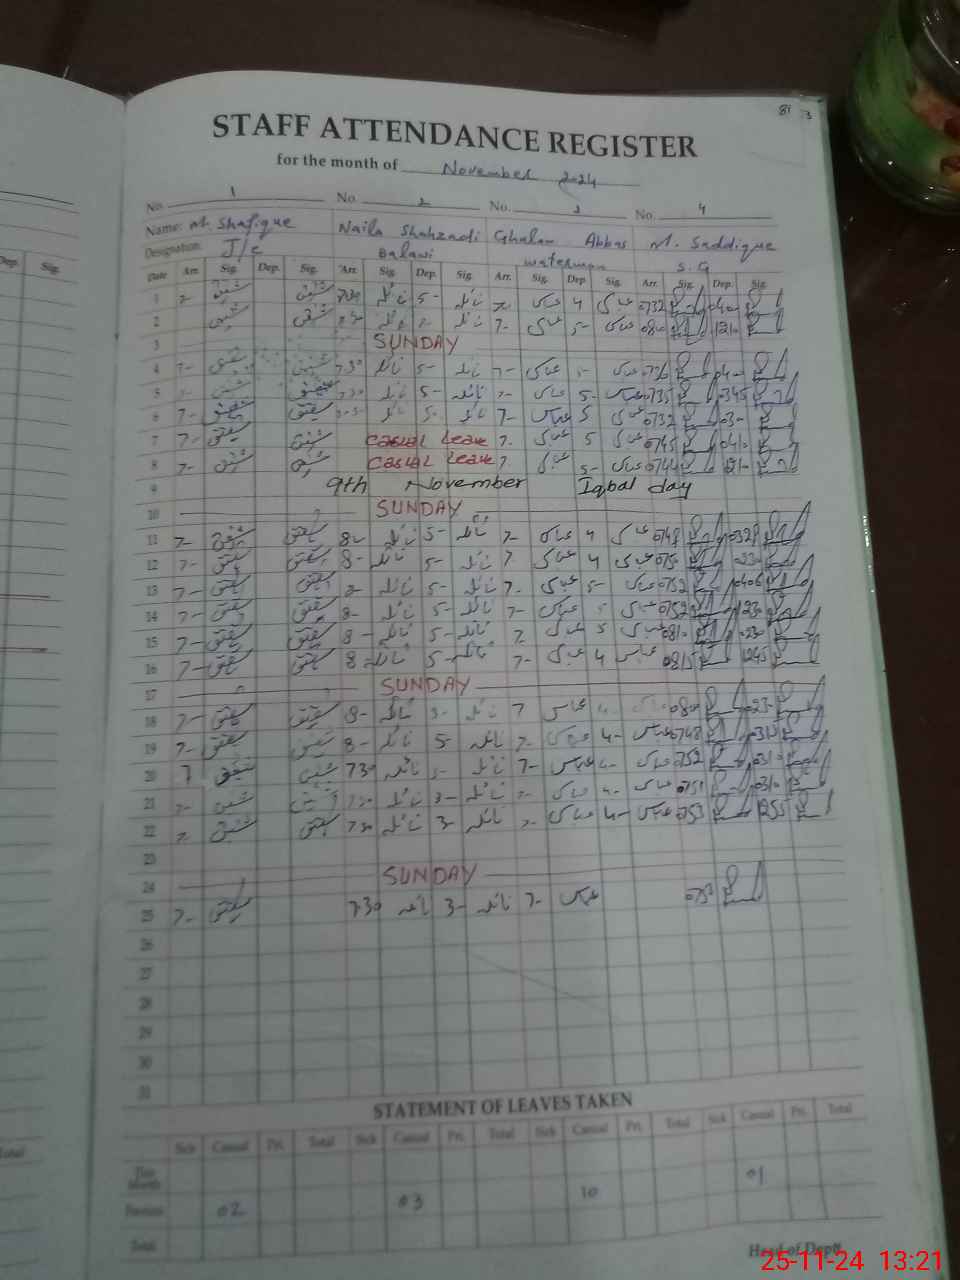 81 3
STAFF ATTENDANCE REGISTER
for the month of November 2024
No. 1 No. 2 No. 3 No. 4
Name: M. Shafique Naila Shahzadi Ghulam Abbas M. Saddique
Designation: J/C Balawi waterman S.G
Date Arr. Sig. Dep. Sig. Arr. Sig. Dep. Sig. Arr. Sig. Dep. Sig. Arr. Sig. Dep. Sig.
1 شفیق شفیق 7.30 نائلہ 5- نائلہ 7- عباس 4 عباس 0732
2 شفیق شفیق نائلہ نائلہ 7- عباس 5- عباس
3 SUNDAY
4 7- شفیق شفیق 7.30 نائلہ 5- نائلہ 7- عباس 5- عباس 0736
5 شفیق شفیق 7.30 نائلہ 5- نائلہ عباس 5- عباس 0735 0345
6 7- شفیق شفیق نائلہ 5- نائلہ 7- عباس 5 عباس 0732
7 7- شفیق شفیق Casual Leave 7. عباس 5 عباس 0745
8 7- شفیق شفیق Casual Leave 7 عباس 5- عباس 0744
9 9th November Iqbal day
10 SUNDAY
11 7- شفیق شفیق 8- نائلہ 5- نائلہ 7- عباس 4 عباس 0748 0328
12 7- شفیق شفیق 8- نائلہ 5- نائلہ 7 عباس 4 عباس 0750
13 7- شفیق شفیق نائلہ 5- نائلہ 7- عباس 5- عباس 0752 0406
14 7- شفیق شفیق 8- نائلہ 5- نائلہ 7- عباس 5 عباس 0752
15 7- شفیق شفیق 8- نائلہ 5- نائلہ 7 عباس 5 عباس
16 7- شفیق شفیق 8- نائلہ 5- نائلہ 7- عباس 4 عباس 0815 1245
17 SUNDAY
18 7- شفیق شفیق 8- نائلہ 3- نائلہ 7 عباس 4-
19 7- شفیق شفیق 8- نائلہ 5- نائلہ 7- عباس 4- عباس 0748
20 7 شفیق شفیق 730 نائلہ نائلہ 7- عباس 4- عباس 0752
21 شفیق شفیق 7.30 نائلہ 3- نائلہ عباس 4- عباس 0751
22 شفیق شفیق 7.30 نائلہ 3- نائلہ عباس 4- عباس 0753 1255
23
24 SUNDAY
25 7- شفیق 7.30 نائلہ 3- نائلہ 7- عباس 0753
26
27
28
29
30
31
STATEMENT OF LEAVES TAKEN
Sick Casual Pri. Total Sick Casual Pri. Total Sick Casual Pri. Total Sick Casual Pri. Total
This Month 01
Previous 02 03 10
Total
Head of Deptt.
25-11-24 13:21
Dep. Sig.
Total